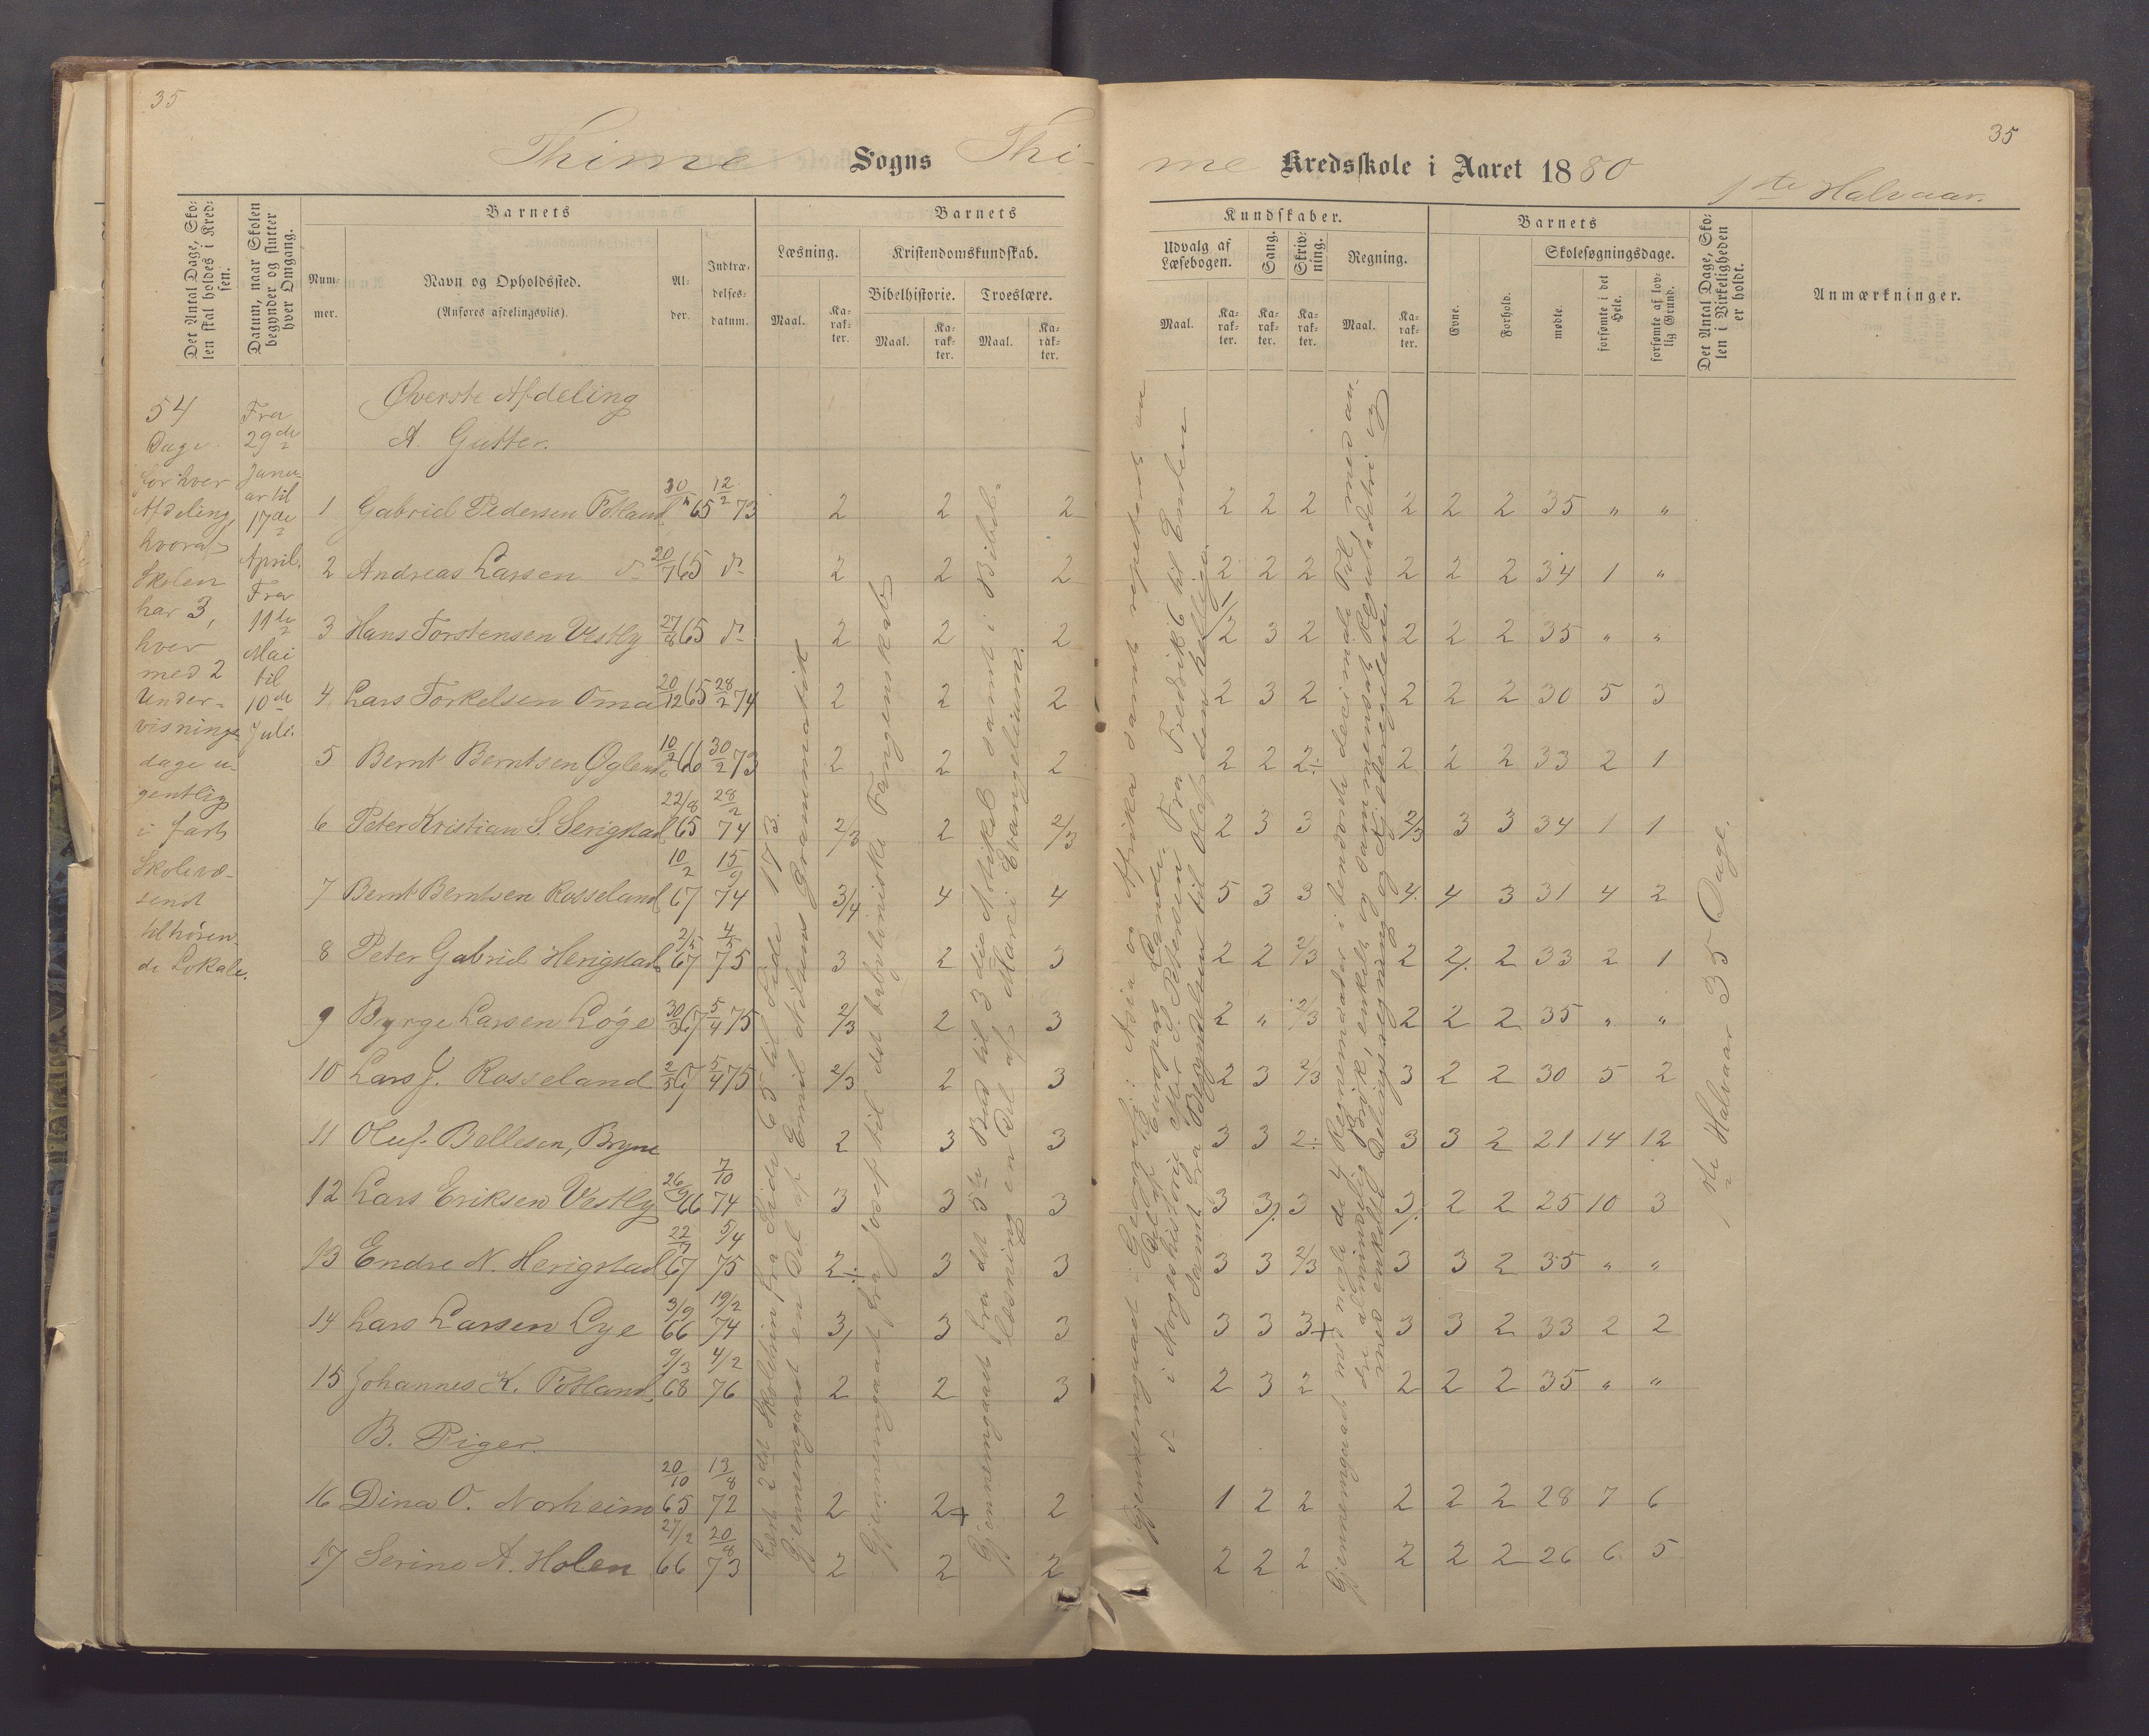 35
35
Thime Sogns Thi-
me Kredsskole i Aaret 1880
1ste Halvaar.
Det Antal Dage, Sko-
len skal holdes i Kred-
sen.
Datum, naar Skolen
begynder og slutter
hver Omgang.
Barnets
Num-
mer.
Navn og Opholdssted.
(Anføres afdelingsviis).
Al-
der.
Indtræ-
delses-
datum.
Barnets
Læsning.
Maal.
Ka-
rak-
ter.
Kristendomskundskab.
Bibelhistorie.
Maal.
Ka-
rak-
ter.
Troeslære.
Maal.
Ka-
rak-
ter.
Kundskaber.
Udvalg af
Læsebogen.
Maal.
Ka-
rak-
ter.
Sang.
Ka-
rak-
ter.
Skriv-
ning.
Ka-
rak-
ter.
Regning.
Maal.
Ka-
rak-
ter.
Barnets
Evne.
Forhold.
Skolesøgningsdage.
mødte.
forsømte i det
Hele.
forsømte af lov-
lig Grund.
Det Antal Dage, Sko-
len i Virkeligheden
er holdt.
Anmærkninger.
54
Dage
for hver
Afdeling,
hvoraf
Skolen
har 3,
hver
med 2
Under-
visnings-
dage u-
gentlig
i fast
Skolevæ-
senet
tilhøren-
de Lokale.
Fra
29de
Janu-
ar til
17de
April.
Fra
11te
Mai
til
10de
Juli.
Øverste Afdeling
A. Gutter.
1 Gabriel Pedersen Fotland 65 12/2 73 2 2 2 2 2 2 2 2 2 35 " "
2 Andreas Larsen do 20/7 65 do 2 2 2 2 2 2 2 2 2 34 1 "
3 Hans Torstensen Vestly 27/8 65 do 2 2 2 2 3 2 2 2 2 35 " "
4 Lars Torkelsen Oma 20/12 65 28/2 74 2 2 2 2 3 2 2 2 2 30 5 3
5 Bernt Berntsen Øglend 10/2 66 30/2 73 2 2 2 2 2 2÷ 2 2 2 33 2 1
6 Peter Kristian S. Serigstad 22/8 65 28/2 74 2/3 2 2/3 2 3 3 2/3 3 3 34 1 1
7 Bernt Berntsen Rosseland 10/2 67 15/9 74 3/4 4 4 5 3 3 4 4 3 31 4 2
8 Peter Gabriel Herigstad 2/5 67 4/5 75 3 2 3 2 2 2/3 2 2 2 33 2 1
9 Byrge Larsen Løge 30/3 67 5/4 75 2/3 2 3 2 " 2/3 2 2 2 35 " "
10 Lars J. Rosseland 2/5 67 5/4 75 2/3 2 3 2 3 2/3 3 2 2 30 5 2
11 Oluf Bellesen, Bryne 2 3 3 3 3 2÷ 3 3 2 21 14 12
12 Lars Eriksen Vestly 26/9 66 7/10 74 3 3 3 3 3 3 3 2 2 25 10 3
13 Endre N. Herigstad 22/7 67 5/4 75 2÷ 3 3 3 3 2/3 3 3 2 35 " "
14 Lars Larsen Lye 3/9 66 19/2 74 3 3 3 3 3 3+ 3 3 2 33 2 2
15 Johannes K. Fotland 9/3 68 4/2 76 2 2 3 2 3 2 2 2 2 35 " "
B. Piger.
16 Dina O. Norheim 20/10 65 13/8 72 2 2+ 2 1 2 2 2 2 2 28 7 6
17 Serine A. Holen 27/2 66 20/8 73 2 2 2 2 2 2 2 2 2 26 6 5
Læst 2det Skoletrin fra Side 65 til Side 173.
Gjennemgaaet en Del af Emil Nilsens Grammatik
Gjennemgaaet fra Josef til det babyloniske Fangenskab
Gjennemgaaet fra det 5te Bud til 3die Artikel samt i Bibel-
læsning en Del af Marci Evangelium.
Gjennemgaaet i Geografi: Asia og Afrika samt repeteret en
Del af Europas Lande.
do i Norgeshistorie efter S. Petersen Fra Fredrik 6 til Enden
samt fra Begyndelsen til Olaf den hellige.
Gjennemgaaet med nogle de 4 Regnemaader i benævnte decimale Tal, med an-
dre almindelig Brøk, enkelt og sammensat Reguladetri og
med enkelte Delingsregning og Kjederegelen
1ste Halvaar 35 Dage.